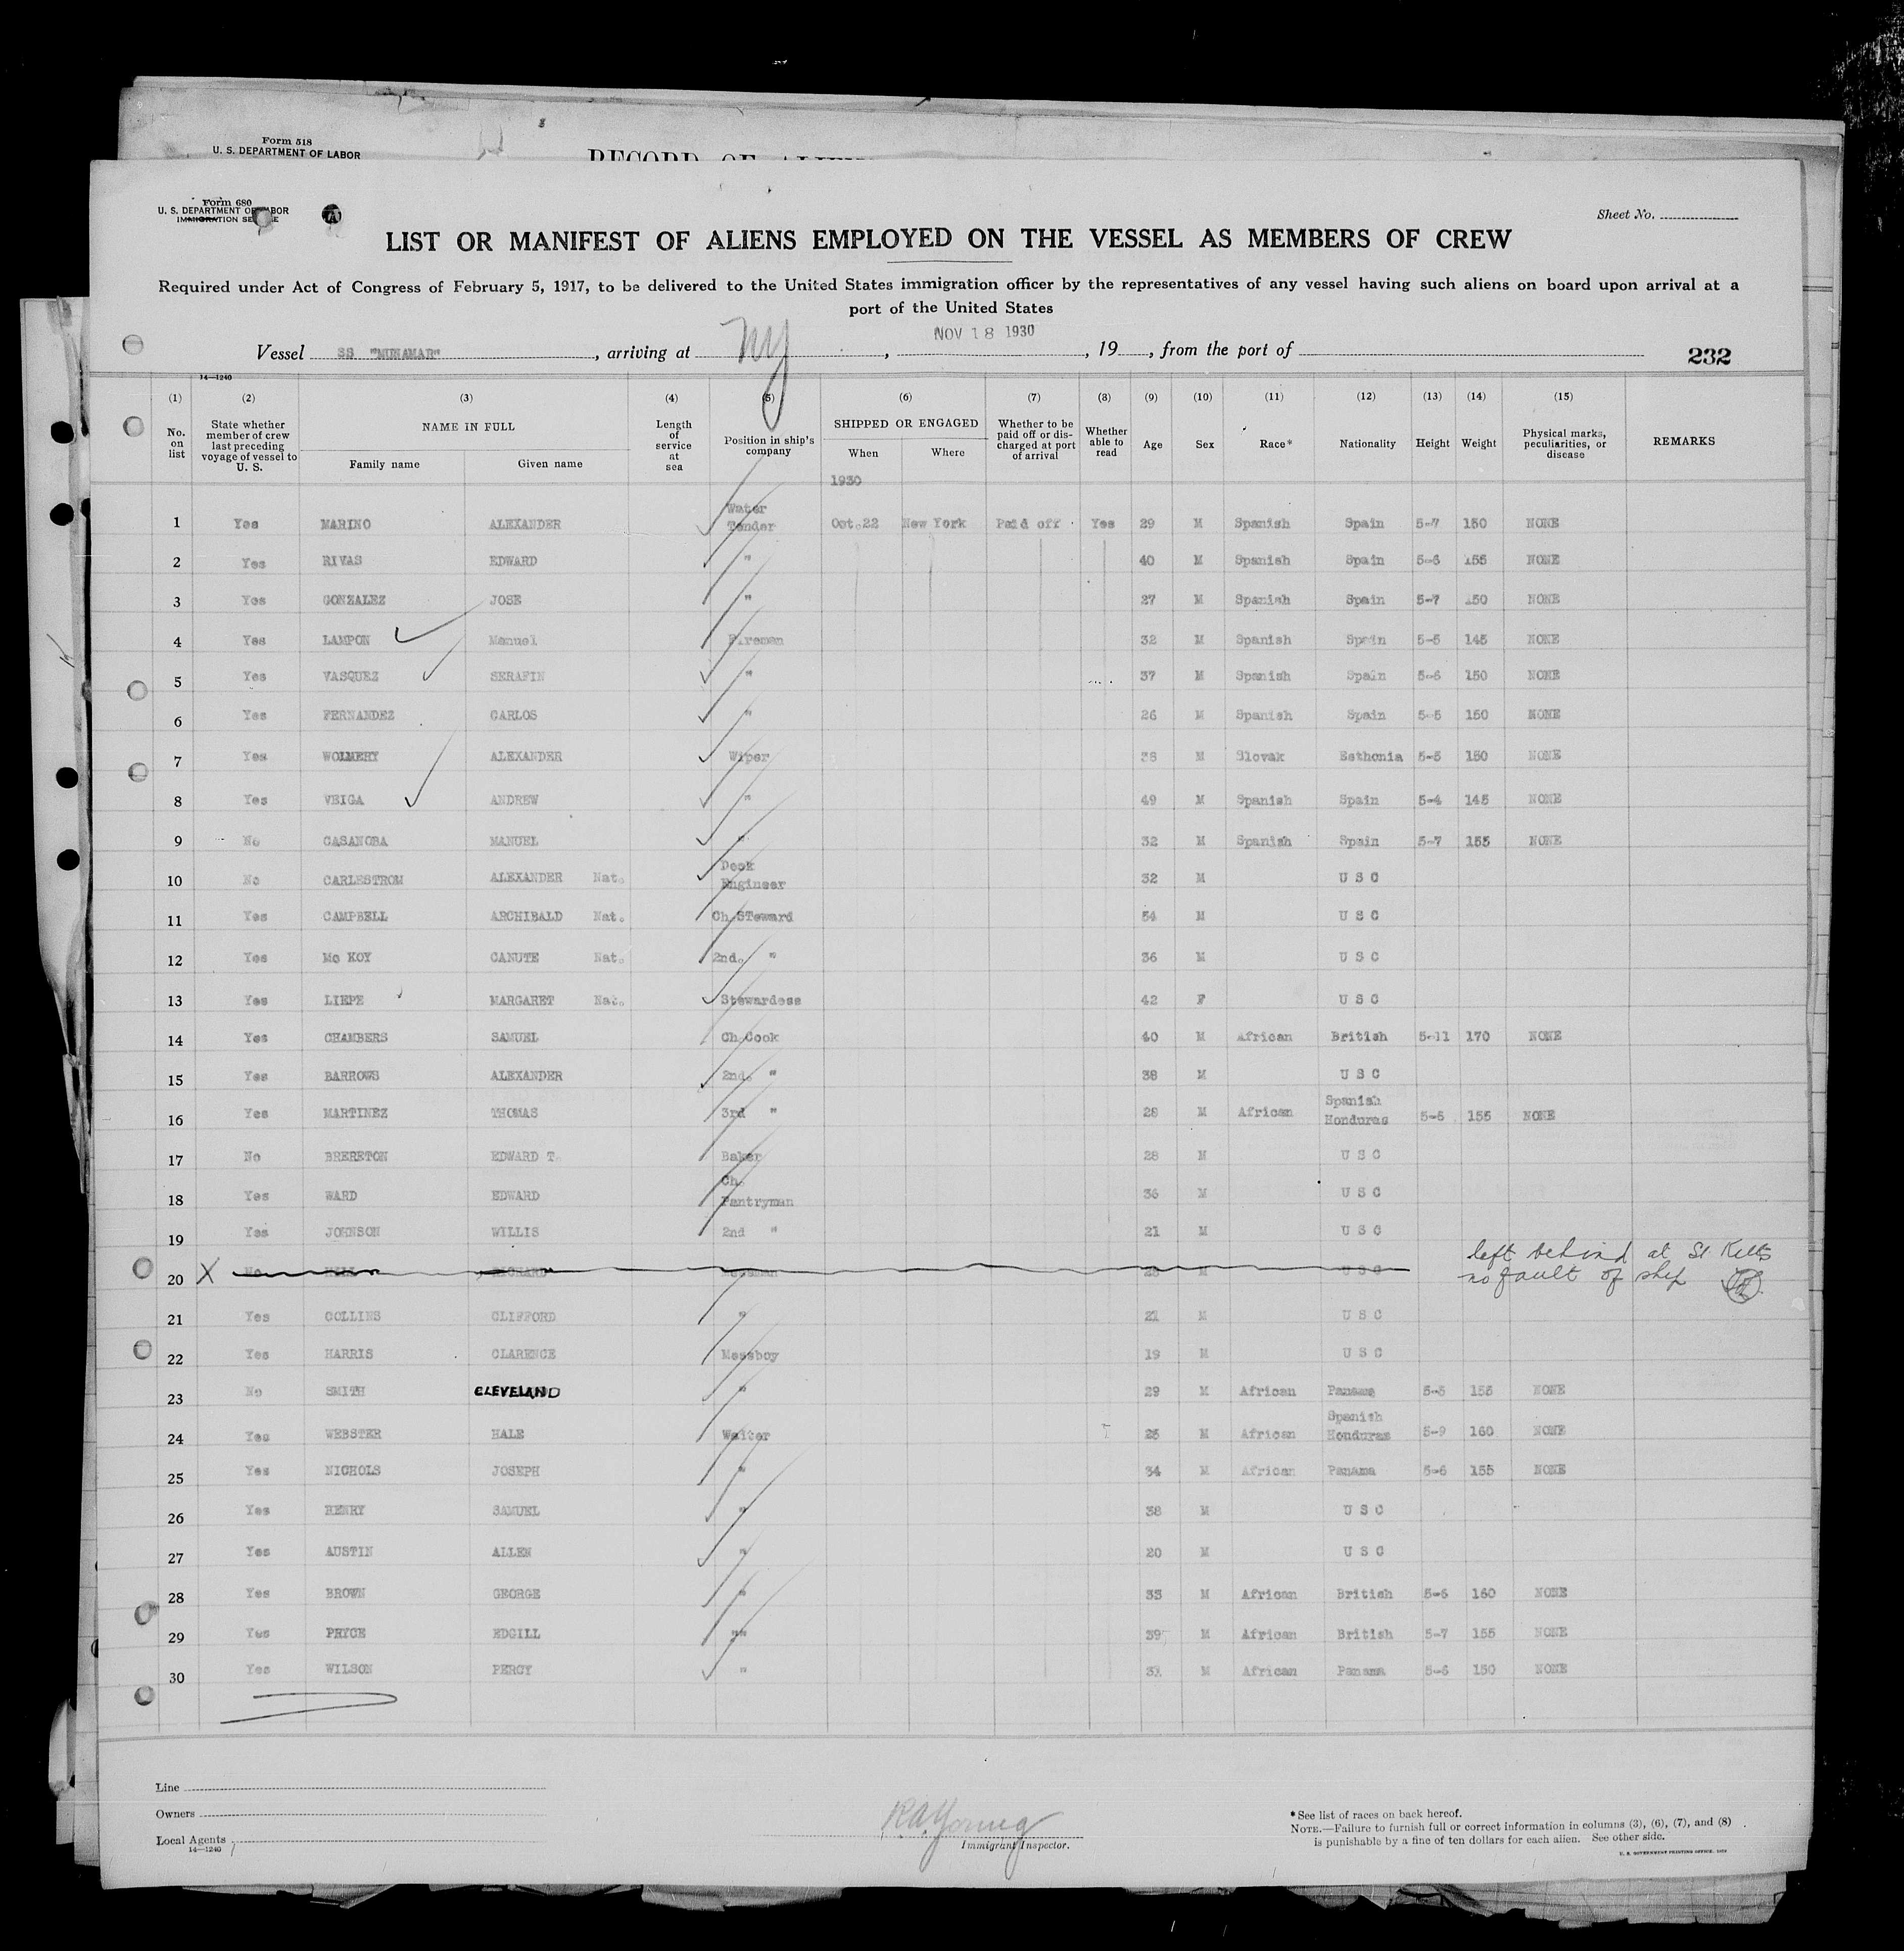 Form 518
U. S. DEPARTMENT OF LABOR
RECORD OF ALIEN
Form 680
U. S. DEPARTMENT OF LABOR
IMMIGRATION SERVICE
Sheet No.
LIST OR MANIFEST OF ALIENS EMPLOYED ON THE VESSEL AS MEMBERS OF CREW
Required under Act of Congress of February 5, 1917, to be delivered to the United States immigration officer by the representatives of any vessel having such aliens on board upon arrival at a
port of the United States
Vessel SS "MUNAMAR", arriving at NY, NOV 18 1930, 19, from the port of 232
14—1240
(1) (2) (3) (4) (5) (6) (7) (8) (9) (10) (11) (12) (13) (14) (15)
No. on list State whether member of crew last preceding voyage of vessel to U. S. NAME IN FULL Family name Given name Length of service at sea Position in ship's company SHIPPED OR ENGAGED When Where Whether to be paid off or discharged at port of arrival Whether able to read Age Sex Race* Nationality Height Weight Physical marks, peculiarities, or disease REMARKS
1930
1 Yes MARINO ALEXANDER Water Tender Oct.22 New York Paid off Yes 29 M Spanish Spain 5-7 150 NONE
2 Yes RIVAS EDWARD " 40 M Spanish Spain 5-6 155 NONE
3 Yes GONZALEZ JOSE " 27 M Spanish Spain 5-7 150 NONE
4 Yes LAMPON Manuel Fireman 32 M Spanish Spain 5-5 145 NONE
5 Yes VASQUEZ SERAFIN " 37 M Spanish Spain 5-6 150 NONE
6 Yes FERNANDEZ CARLOS " 26 M Spanish Spain 5-5 150 NONE
7 Yes WOLMERY ALEXANDER Wiper 38 M Slovak Esthonia 5-5 150 NONE
8 Yes VEIGA ANDREW " 49 M Spanish Spain 5-4 145 NONE
9 No CASANOBA MANUEL " 32 M Spanish Spain 5-7 155 NONE
10 No CARLESTROM ALEXANDER Nat. Deck Engineer 32 M U S C
11 Yes CAMPBELL ARCHIBALD Nat. Ch.STeward 54 M U S C
12 Yes Mc KOY CANUTE Nat. 2nd. " 36 M U S C
13 Yes LIEPE MARGARET Nat. Stewardess 42 F U S C
14 Yes CHAMBERS SAMUEL Ch.Cook 40 M African British 5-11 170 NONE
15 Yes BARROWS ALEXANDER 2nd. " 38 M U S C
16 Yes MARTINEZ THOMAS 3rd " 28 M African Spanish Honduras 5-6 155 NONE
17 No BRERETON EDWARD T. Baker 28 M U S C
18 Yes WARD EDWARD Ch. Pantryman 36 M U S C
19 Yes JOHNSON WILLIS 2nd " 21 M U S C
20 X No RICHARD Messman M U S C left behind at St Kitts
no fault of ship
21 Yes COLLINS CLIFFORD " 21 M U S C
22 Yes HARRIS CLARENCE Messboy 19 M U S C
23 No SMITH CLEVELAND " 29 M African Panama 5-5 155 NONE
24 Yes WEBSTER HALE Waiter 25 M African Spanish Honduras 5-9 160 NONE
25 Yes NICHOLS JOSEPH " 34 M African Panama 5-6 155 NONE
26 Yes HENRY SAMUEL " 38 M U S C
27 Yes AUSTIN ALLEN " 20 M U S C
28 Yes BROWN GEORGE " 33 M African British 5-6 160 NONE
29 Yes PRYCE EDGILL "" 39 M African British 5-7 155 NONE
30 Yes WILSON PERCY " 31 M African Panama 5-6 150 NONE
Line
Owners
Local Agents
14—1240
R A Young
Immigrant Inspector.
*See list of races on back hereof.
NOTE.—Failure to furnish full or correct information in columns (3), (6), (7), and (8)
is punishable by a fine of ten dollars for each alien. See other side.
U. S. GOVERNMENT PRINTING OFFICE